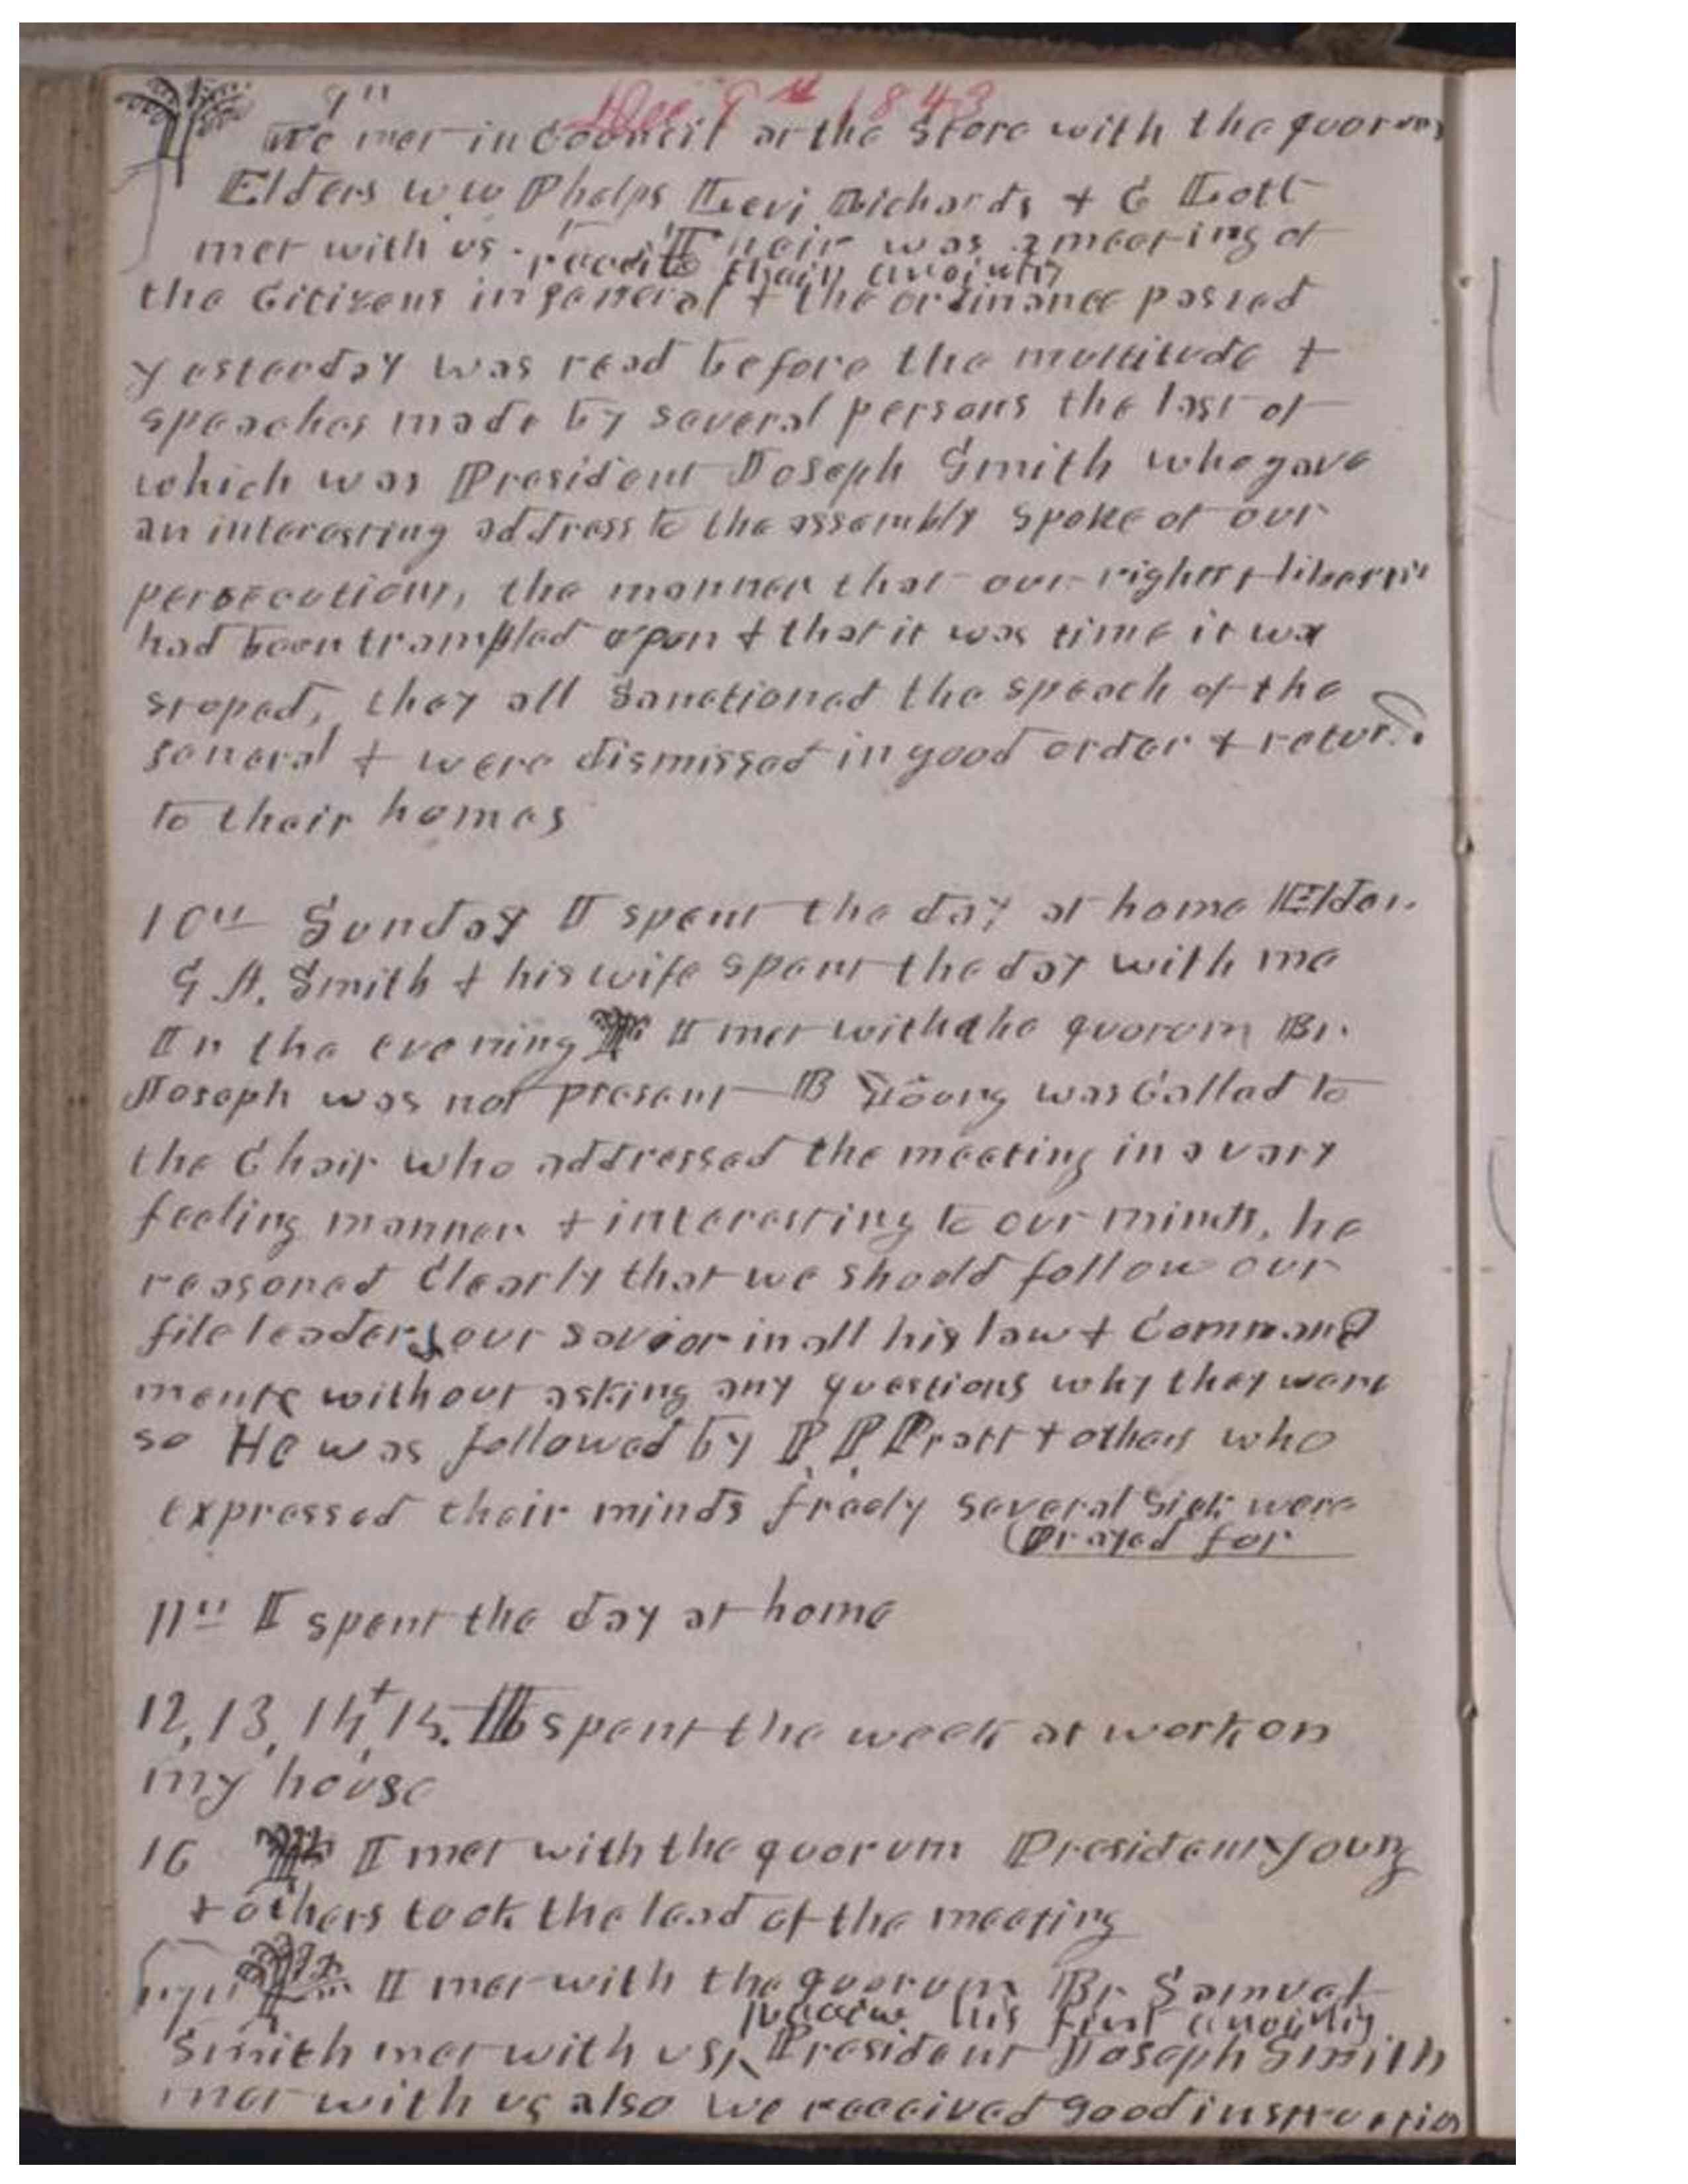 9th Dec 9th 1843
We met in Council at the Store with the quorum
Elders W W Phelps Levi Richards & C Lott
met with us. Their was a meeting of
receive their anointing
the Citizens in general & the ordinance passed
yesterday was read before the multitude &
speaches made by several persons the last of
which was President Joseph Smith who gave
an interesting address to the assembly Spoke of our
persecutions, the manner that our rights & liberties
had been trampled upon & that it was time it was
stoped, they all Sanctioned the speach of the
general & were dismissed in good order & return
to their homes
10th Sunday I spent the day at home Elder
G. A. Smith & his wife spent the day with me
In the evening I met with the quorum Br.
Joseph was not present B Young was Called to
the Chair who addressed the meeting in a very
feeling manner & interesting to our minds, he
reasoned Clearly that we should follow our
file leader & our savior in all his law & Command
ments without asking any questions why they were
so He was followed by P. P. Pratt & others who
expressed their minds freely several Sick were
(Prayed for
11th I spent the day at home
12, 13, 14, & 15. I spent the week at work on
my house
16 I met with the quorum President Young
& others took the lead of the meeting
17th I met with the quorum Br. Samuel
receive his first anointing
Smith met with us, President Joseph Smith
met with us also We received good instruction